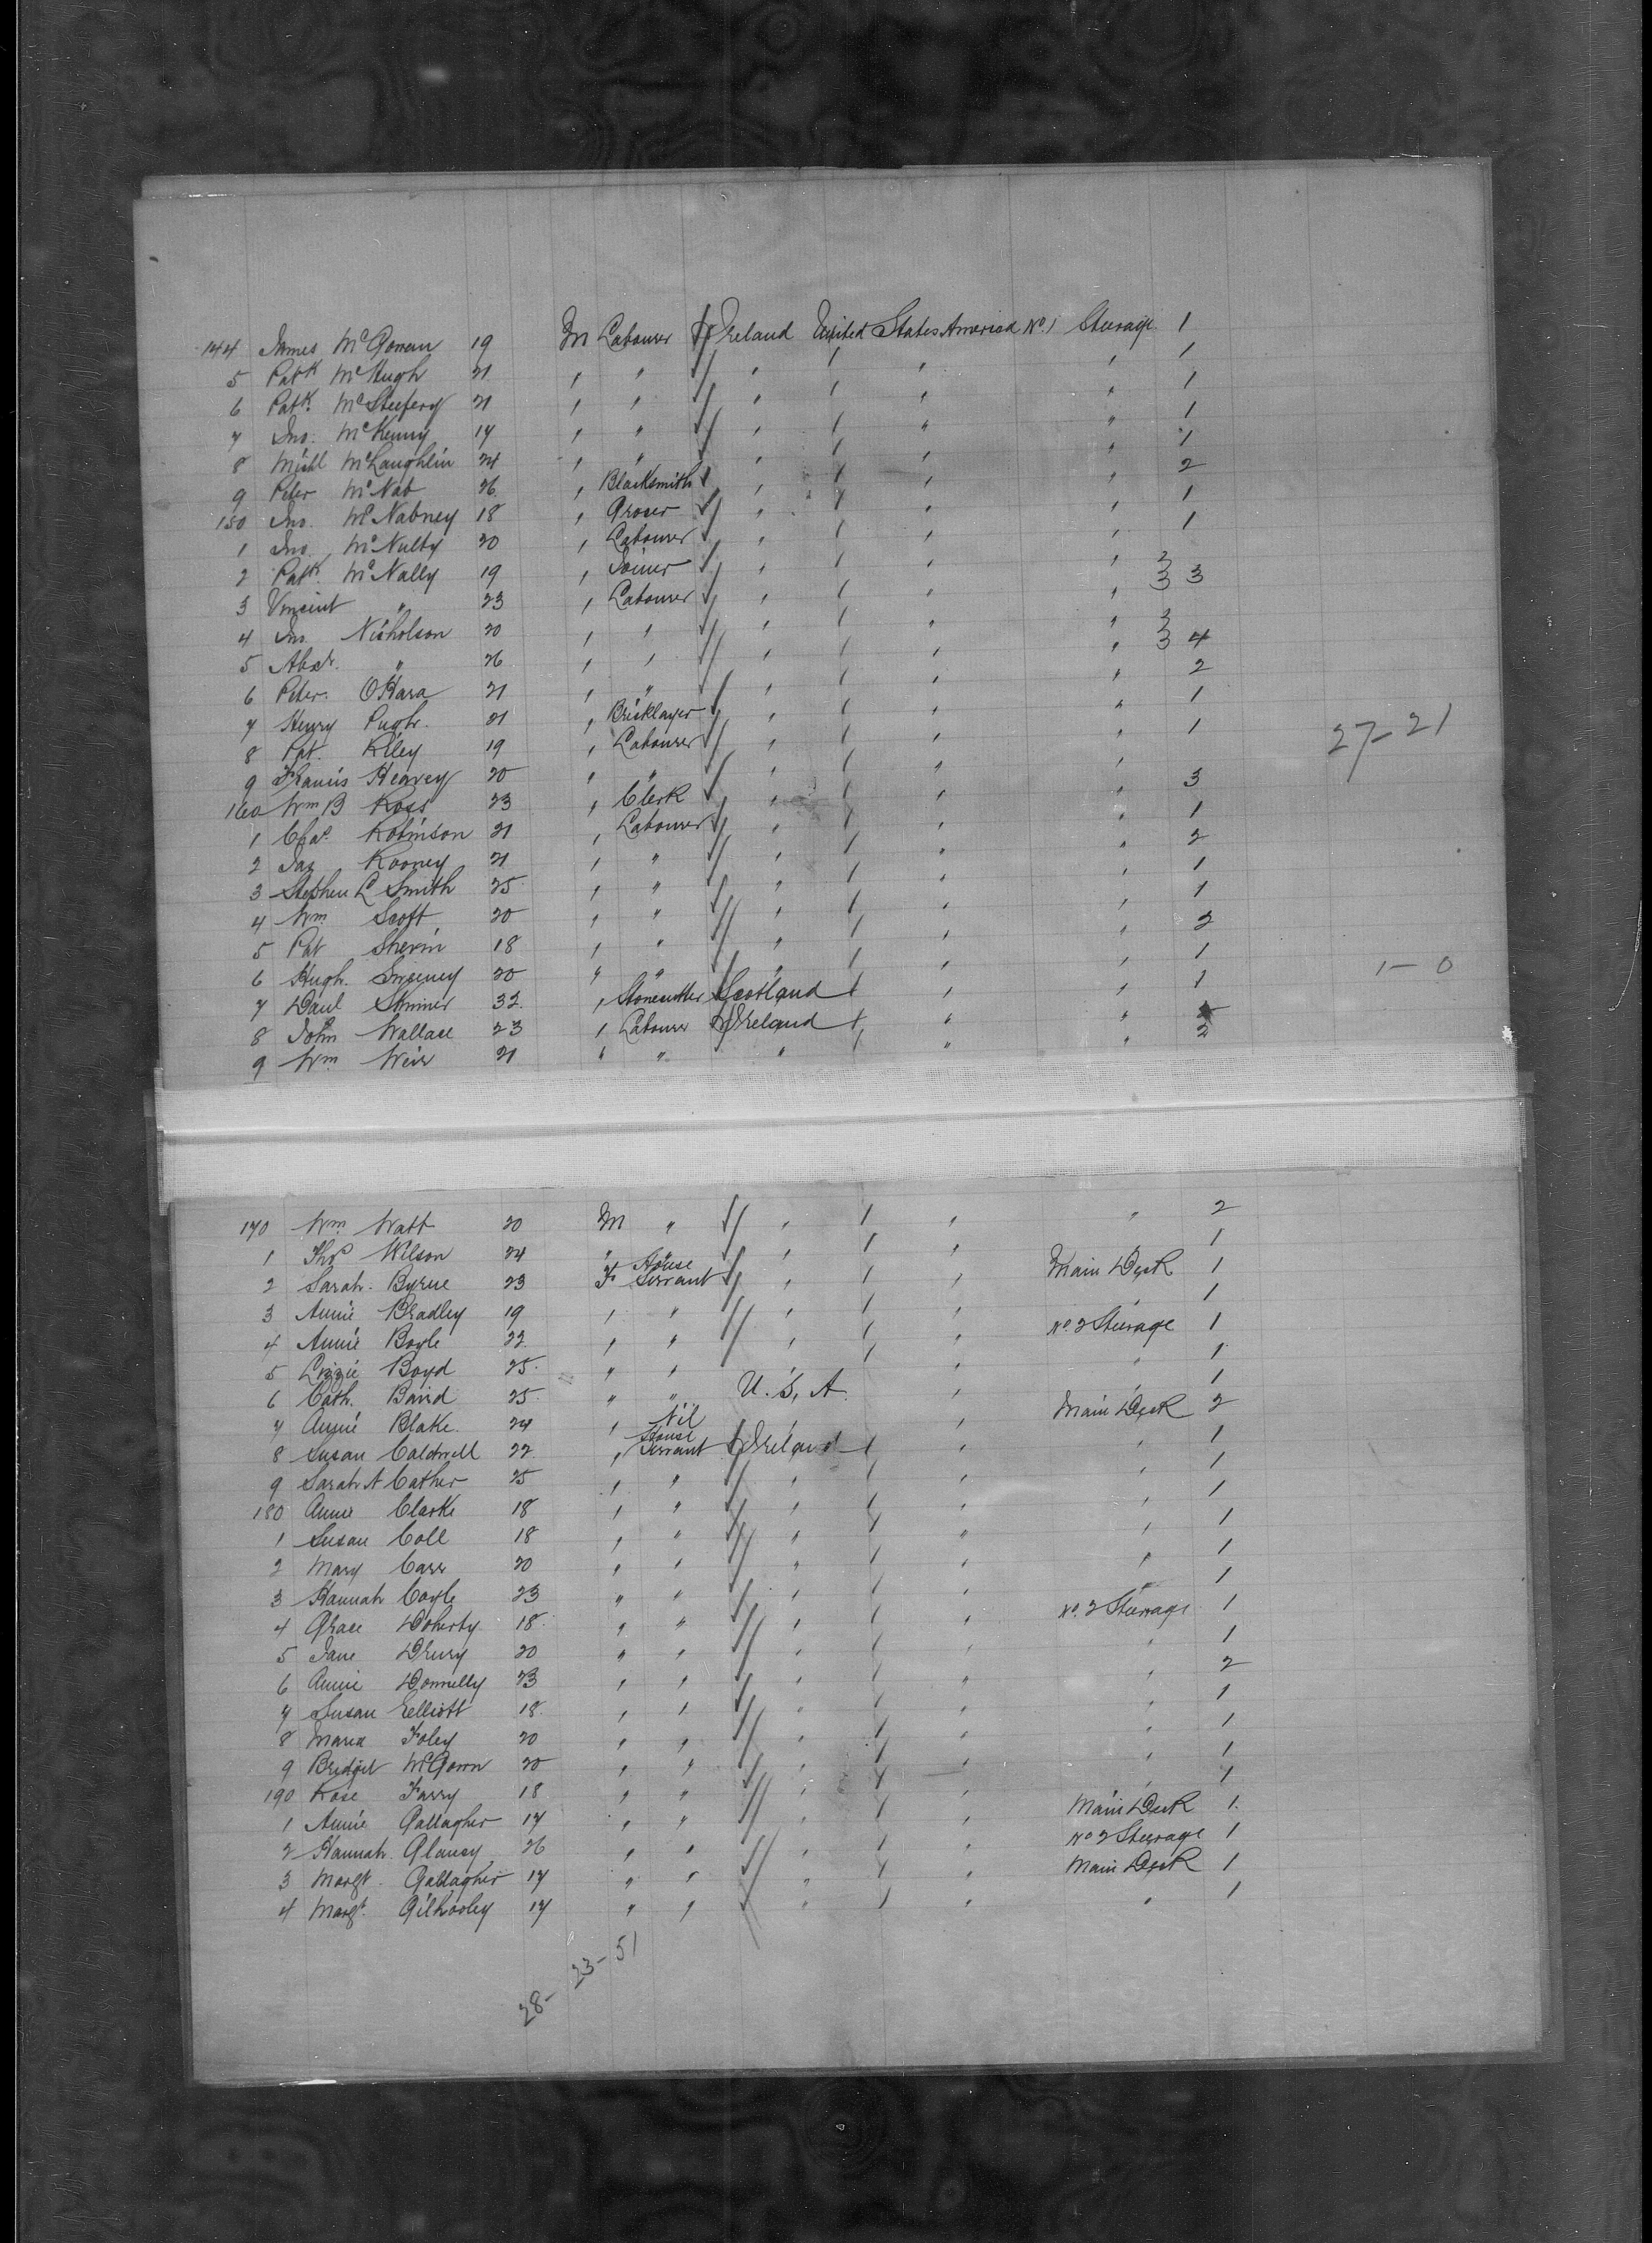 144 James McGowan 19 M Labourer Ireland United States America No. 1 Steerage 1
5 Patk McHugh 21 " " " " " " 1
6 Patk. 21 " " " " " " 1
7 Jno. McKenny 17 " " " " " " 1
8 Michl McLaughlin 24 " " " " " " 1
9 Peter McNab 26 " Blacksmith " " " " 2
150 Jno. McNabney 18 " Grocer " " " " 1
1 Jno. McNulty 20 " Labourer " " " " 1
2 Patk. McNally 19 " Joiner " " " " 3
3 Vincent " 23 " Labourer " " " " 3 3
4 Jno. Nicholson 20 " " " " " " 3
5 " 26 " " " " " " 3 4
6 Peter O'Hara 21 " " " " " " 2
7 Henry Pugh 21 " Bricklayer " " " " 1
8 Pat. Riley 19 " Labourer " " " " 1
27-21
9 Francis Reavey 20 " " " " " "
160 Wm B Ross 23 " Clerk " " " " 3
1 Chas. Robinson 21 " Labourer " " " " 1
2 Jas Rooney 21 " " " " " " 2
3 Stephen L Smith 25 " " " " " " 1
4 Wm Scott 20 " " " " " " 1
5 Pat Shevin 18 " " " " " " 2
6 Hugh Sweeney 20 " " " " " " 1
1-0
7 Danl Skinner 32 " Stonecutter Scotland " " " 1
8 John Wallace 23 " Labourer Ireland " " "
9 Wm Weir 21 " " " " " " 2
170 Wm Watt 20 M " " " " " 2
1 Thos Wilson 24 " " " " " " 1
2 Sarah Byrne 23 F House Servant " " " Main Deck 1
3 Annie Bradley 19 " " " " " " 1
4 Annie Boyle 22 " " " " " No. 2 Steerage 1
5 Lizzie Boyd 25 " " " " " " 1
6 Cath. Baird 25 " " U.S.A. " " 1
7 Annie Blake 24 " Nil " Main Deck 2
8 Susan Caldwell 22 " House Servant Ireland " " " 1
9 Sarah A Cather 25 " " " " " " 1
180 Annie Clarke 18 " " " " " " 1
1 Susan Coll 18 " " " " " " 1
2 Mary Carr 20 " " " " " " 1
3 Hannah Coyle 23 " " " " " " 1
4 Grace Doherty 18 " " " " " No. 2 Steerage 1
5 Jane Drury 20 " " " " " " 1
6 Annie Donnelly 23 " " " " " " 2
7 Susan Elliott 18 " " " " " " 1
8 Maria Foley 20 " " " " " " 1
9 Bridget McGown 20 " " " " " " 1
190 Rose Farry 18 " " " " " " 1
1 Annie Gallagher 17 " " " " " Main Deck 1
2 Hannah Glancy 26 " " " " " No 2 Steerage 1
3 Margt. Gallagher 17 " " " " " Main Deck 1
4 Margt. Gilhooley 17 " " " " " " 1
28- 23-51